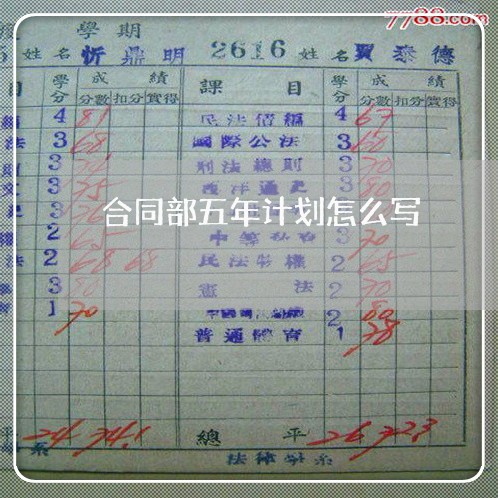 7788.com
學 期
姓 名 忻鼎明 2616 姓 名 賈泰德
目 學分 成 績 課 目 學分 成 績
分數 扣分 實得 分數 扣分 實得
4 81 民法債編 4 67
法 3 68 國際公法 3 60
則 3 刑法總則 3 70
3 75 西洋通史 3 80
3 合同部五年计划怎么写
2 65 3 70
法 2 68 68 民法物權 2 65
3 80 憲 法 2 70
1 70 2 80
普通體育 1 78
平 24 74.1 總 平 26 72.3
系 法律學系